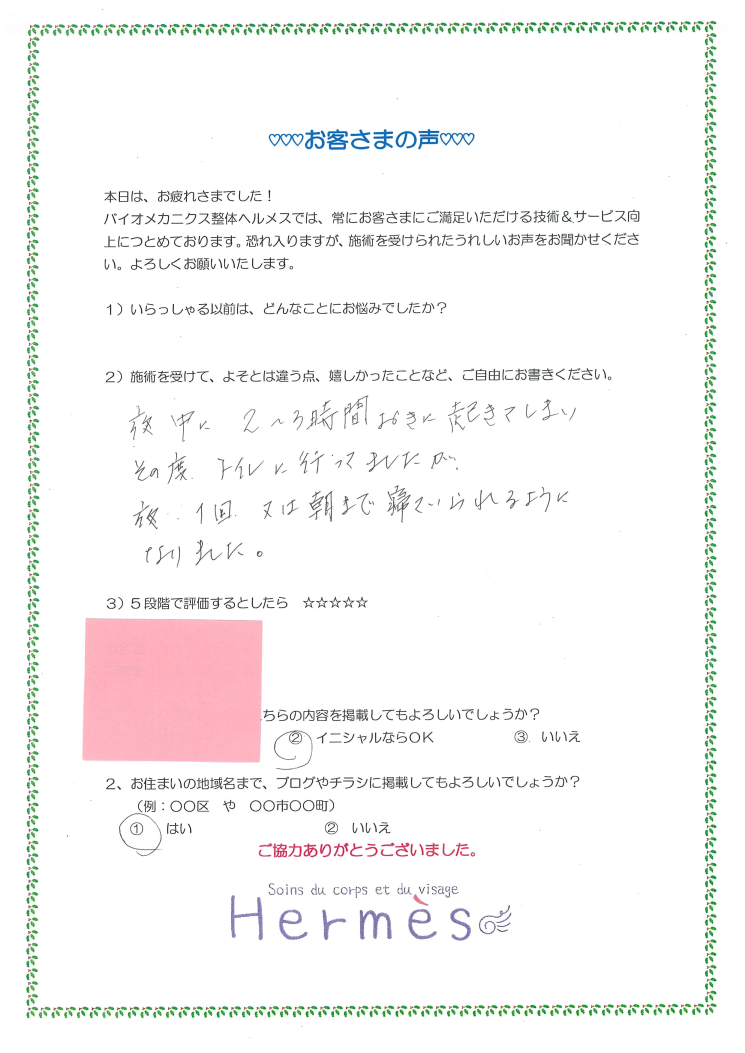 ♡♡♡お客さまの声♡♡♡
本日は、お疲れさまでした！
バイオメカニクス整体ヘルメスでは、常にお客さまにご満足いただける技術＆サービス向
上につとめております。恐れ入りますが、施術を受けられたうれしいお声をお聞かせくださ
い。よろしくお願いいたします。
１）いらっしゃる以前は、どんなことにお悩みでしたか？
２）施術を受けて、よそとは違う点、嬉しかったことなど、ご自由にお書きください。
夜中に 2～3時間おきに起きてしまい
その度、トイレに行ってましたが、
夜 1回 又は朝まで寝ていられるように
なりました。
３）５段階で評価するとしたら ☆☆☆☆☆
ちらの内容を掲載してもよろしいでしょうか？
② イニシャルならＯＫ ③ いいえ
２、お住まいの地域名まで、ブログやチラシに掲載してもよろしいでしょうか？
（例：〇〇区 や 〇〇市〇〇町）
① はい ② いいえ
ご協力ありがとうございました。
Soins du corps et du visage
Hermès